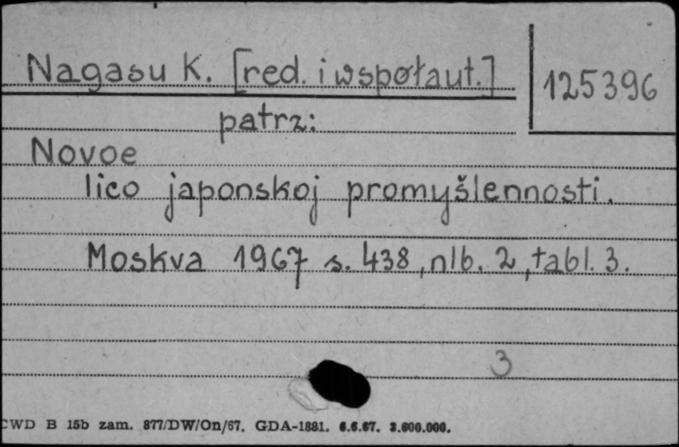 Nagasu K. [red. i współaut.]
125396
patrz:
Novoe
lico japonskoj promyšlennosti.
Moskva 1967 s. 438, nlb. 2, tabl. 3.
3
CWD B 15b zam. 877/DW/On/67. GDA-1881. 6.6.67. 3.600.000.